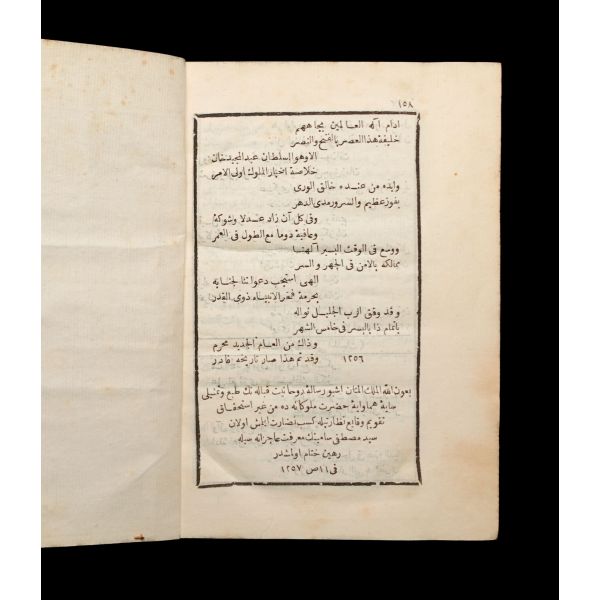 ١٥٨
ادام اله العالمين بجاههم
خليفة هذا العصر بالفتح والنصر
الا وهو السلطان عبد المجيد خان
خلاصة اخيار الملوك اولى الامر
وايده من عنده خالق الورى
بفوز عظيم والسرور مدى الدهر
وفى كل آن زاد عدلا وشوكة
وعافية دوما مع الطول فى العمر
ووسع فى الوقت اليسير آلهنا
ممالكه بالامن فى الجهر والسر
الهى استجب دعواتنا لجنابه
بحرمة فخر الانبياء ذوى القدر
وقد وفق الرب الجليل نواله
باتمام ذا باليسر فى خامس الشهر
وذاك من العام الجديد محرم
وقد تم هذا صار تاريخه قادر ١٢٥٦
بعون الله الملك المنان اشبو رسالة روحانيت قباله نك طبع وتمثيلى
سايۀ همايۀ حضرت ملوكانه ده من غير استحقاق
تقويم وقايع نظارتيله كسب نضارت ايتمش اولان
سيد مصطفى سامينك معرفت عاجزانه سيله
رهين ختام اولمشدر
فى ١١ ص ١٢٥٧